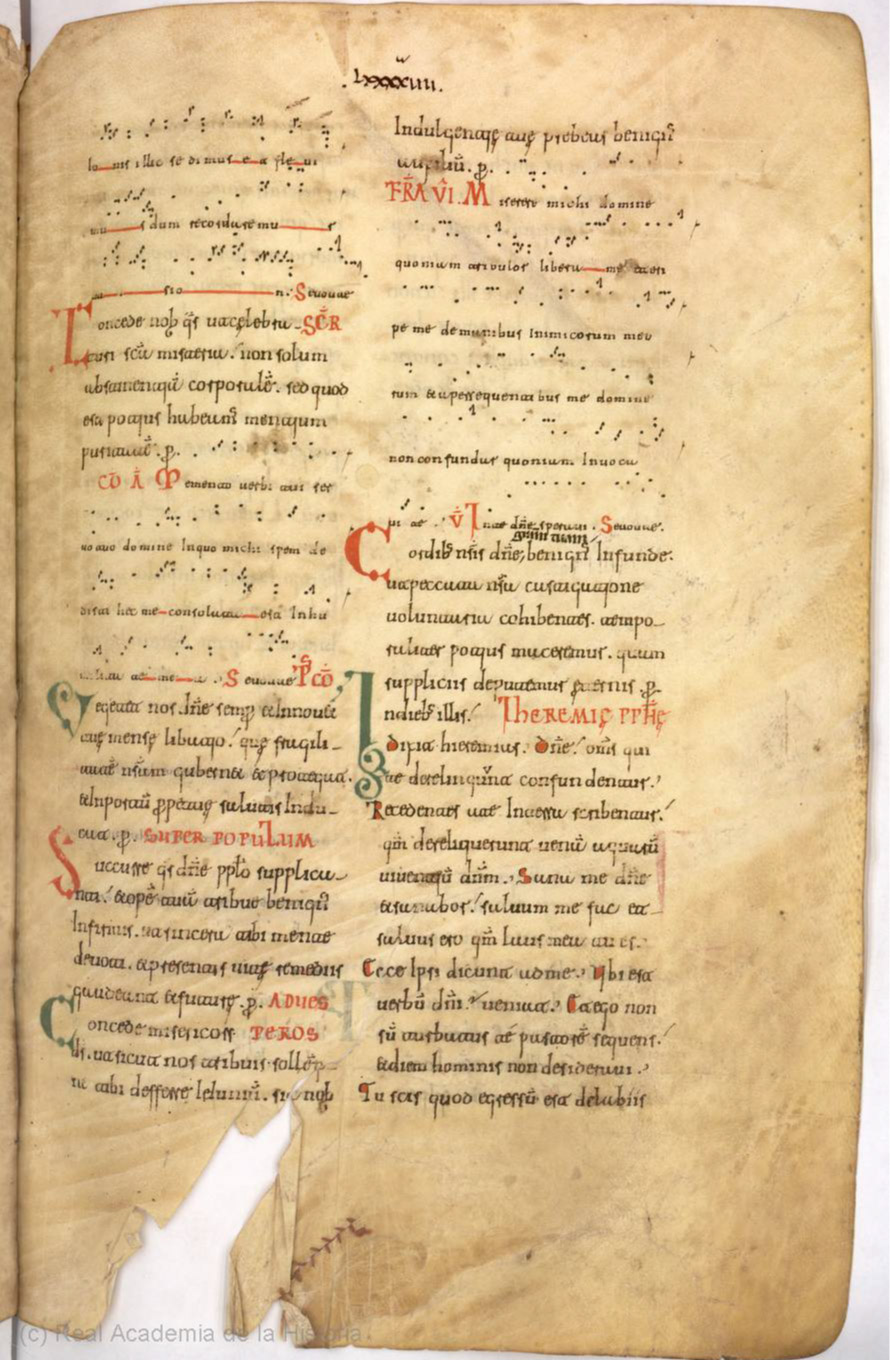 LXXXXIIII.
lonis illic sedimus et fleui
mus dum recordaremur
sion. Seuouae
Concede nob q̄s ut celebra SCR
turi scā misteria. non solum
abstinentiā corporalē. sed quod
est potius habeam̄ mentium
puritatē. p.
CŌ A Memento uerbi tui ser
uo tuo domine in quo michi spem de
disti hec me consolata est in hu
militate mea. Seuouae PCŌ
Uegetet nos dñe semp et innouet
tuę mensę libatio. quę fragili
tatē nr̄am gubernet et protegat.
et in portū ppetuę salutis indu
cat. p. SUPER POPULUM
Succurre q̄s dñe pplo supplica
nti. et opē tuā tribue benign̄
infirmis. ut sincera tibi mente
deuoti. et presentis uitę remediis
gaudeant et futurę. p. AD UES
Concede misericors PEROS
ds. ut sicut nos tribuis sollēp
ne tibi defferre ieiuniū. sic nob
Indulgentię tuę prebeas benign̄
auxiliū. p.
FR̄A VI. Miserere michi domine
quonium tribulor libera me et eri
pe me de manibus inimicorum meo
rum et a persequentibus me domine
non confundar quoniam inuoca
ui te. V In te dn̄e speraui. Seuouae.
Cordib nr̄is dñe, benign̄ infunde.
ut a peccata nr̄a castigatione
uoluntaria cohibentes. tempo
raliter potius maceremur. quam
suppliciis deputemur ęternis. p.
In dieb illis. IHEREMIĘ PPHĘ
Dixit hieremias. Dn̄e. om̄s qui
te derelinqunt confundentur.
Recedentes a te in terra scribentur.
qm̄ dereliquerunt uenā aquarū
uiuentiū dn̄m. Sana me dn̄e
et sanabor. saluum me fac et
saluus ero qm̄ laus mea tu es.
Ecce ipsi dicunt ad me. Ubi est
uerbū dn̄i. ueniat. Et ego non
sū turbatus te pastorē sequens.
et diem hominis non desideraui.
Tu scis quod egressū est de labiis
(c) Real Academia de la Historia